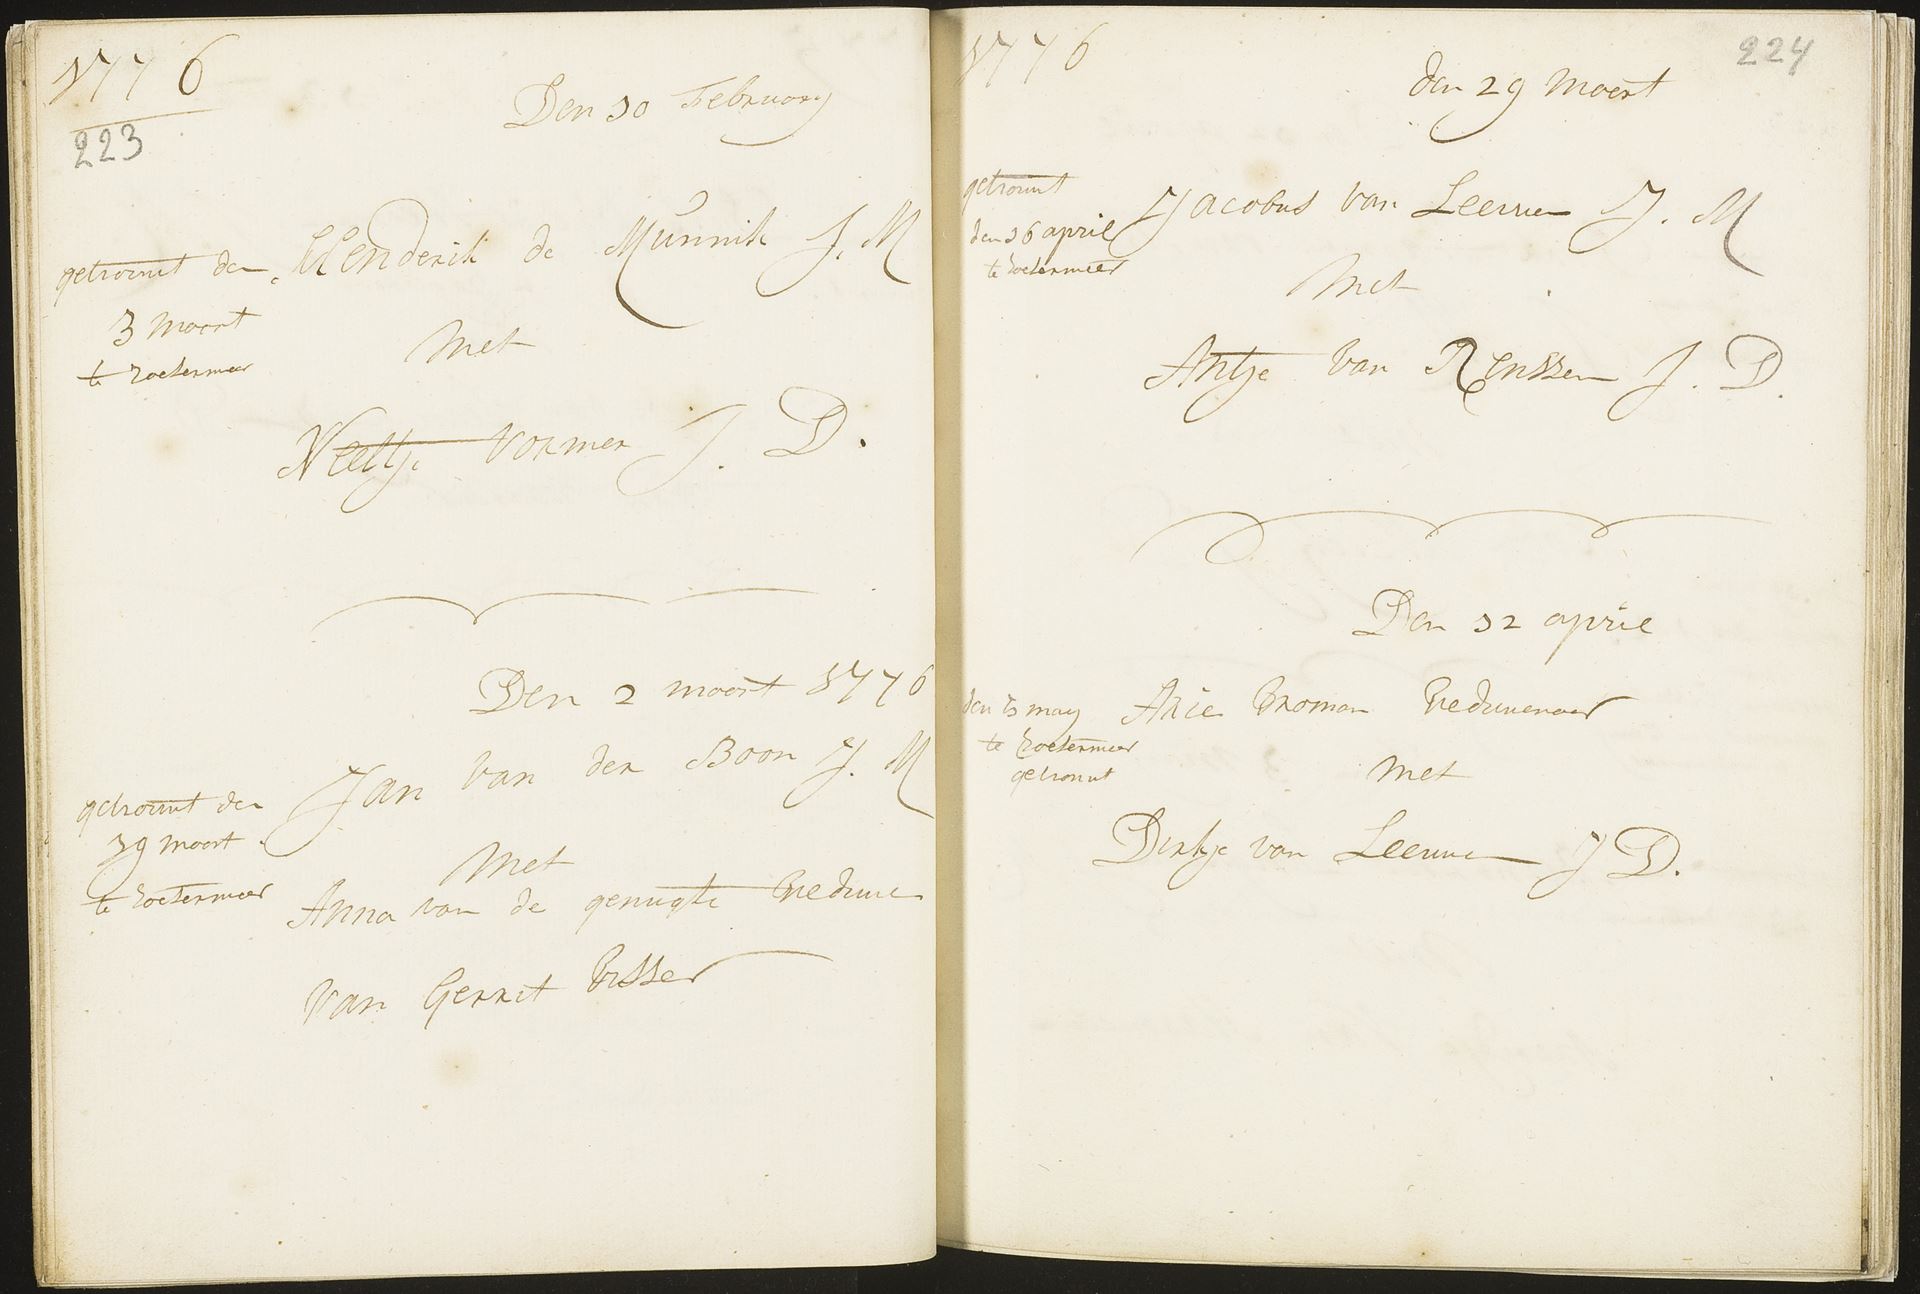 1776
223
Den 10 February
getrouut den
3 maart
te zoetermeer
Henderik de Munnik J. M
Met
Neeltje Vormer J. D.
Den 2 maart 1776
getrouut den
19 maart
te zoetermeer
Jan Van der Boon J. M
Met
Anna van de genugte Weduwe
Van Gerret Visser
1776
224
den 29 Maert
getrouut
den 16 april
te zoetermeer
Jacobus Van Leeuwen J. M
Met
Antje Van Renssen J. D.
Den 12 april
den may
te zoetermeer
getrouut
Arie Broman Weduwenaar
Met
Dirkje van Leeuwen J D.